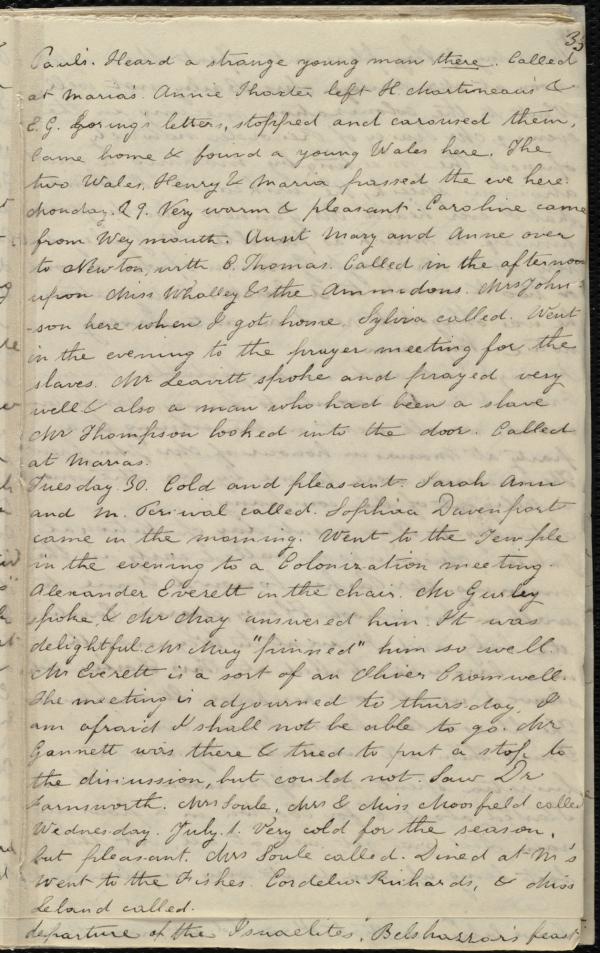 33
Paul's. Heard a strange young man there. Called
at Maria's. Annie Thaxter left H. Martineau's &
E. G. Loring's letters, stopped and caroused them,
Came home & found a young Wales here. The
two Wales, Henry & Maria passed the eve here.
Monday. 29. Very warm & pleasant. Caroline came
from Weymouth. Aunt Mary and Anne over
to Newton, with C. Thomas. Called in the afternoon
upon Miss Whalley & the Ammidons. Mrs John-
-son here when I got home. Sylvia called. Went
in the evening to the prayer meeting for the
slaves. Mr Leavitt spoke and prayed very
well & also a man who had been a slave
Mr Thompson looked into the door. Called
at Marias.
Tuesday. 30. Cold and pleasant. Sarah Ann
and M. Percival called. Sophia Davenport
came in the morning. Went to the Temple
in the evening to a Colonization meeting.
Alexander Everett in the chair. Mr Gurley
spoke, & Mr May answered him. It was
delightful. Mr May "pinned" him so well.
Mr Everett is a sort of an Oliver Cromwell.
The meeting is adjourned to thursday. I
am afraid I shall not be able to go. Mr
Gannett was there & tried to put a stop to
the discussion, but could not. Saw Dr
Farnsworth. Mrs Soule, Mrs & Miss Moosfield called
Wednesday. July. 1. Very cold for the season,
but pleasant. Mrs Soule called. Dined at M's
Went to the Fishes. Cordelia Richards, & Miss
Leland called.
departure of the Israelites", Belshazzar's feast